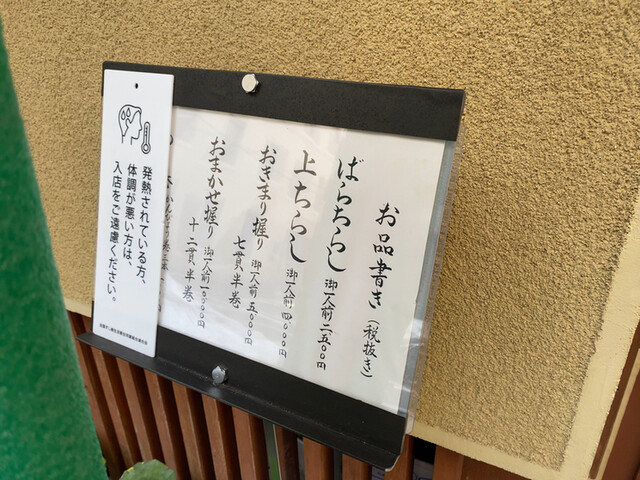 お品書き（税抜き）
ばらちらし 御一人前 二五〇〇円
上ちらし 御一人前 四〇〇〇円
おきまり握り 御一人前 五〇〇〇円
七貫半巻
おまかせ握り 御一人前 一〇〇〇〇円
十二貫半巻
発熱されている方、
体調が悪い方は、
入店をご遠慮ください。